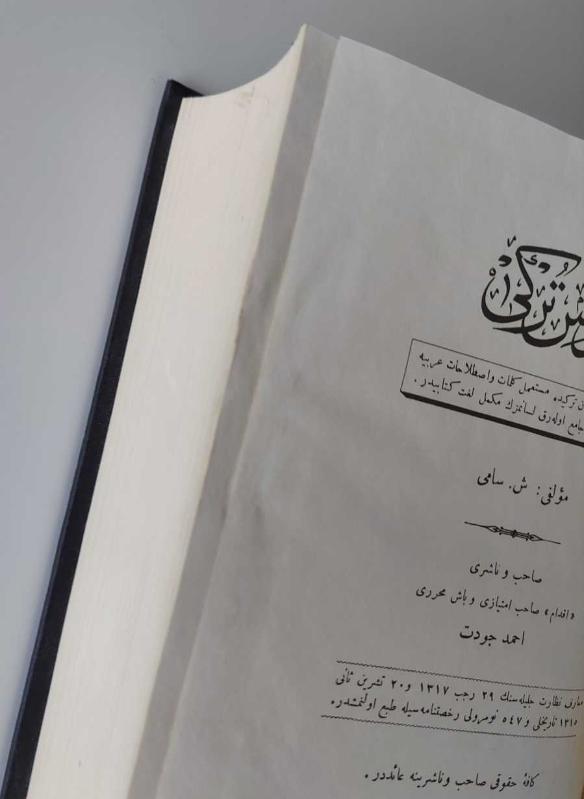 تركی
تركیده مستعمل كلمات و اصطلاحات عربیه
جامع اوله‌رق لسانمزك مكمل لغت كتابیدر .
مؤلفی : ش . سامی
صاحب و ناشری
«اقدام» صاحب امتیازی و باش محرری
احمد جودت
معارف نظارت جلیله‌سنك ٢٩ رجب ١٣١٧ و ٢٠ تشرین ثانی
١٣١٥ تاریخلی و ٥٤٧ نومرولی رخصتنامه‌سیله طبع اولنمشدر .
كافهٔ حقوقی صاحب و ناشرینه عائددر .